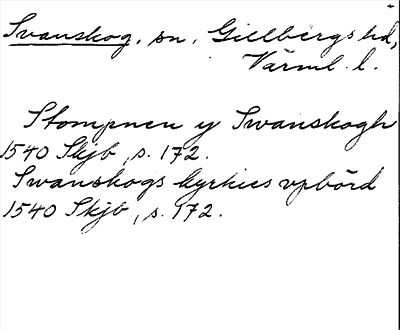 Svanskog, sn, Gillbergs hd,
Värml. l.
Stompnen y Swanskogh
1540 Skjb, s. 172.
Swanskogs kyrkies vpbörd
1540 Skjb, s. 172.